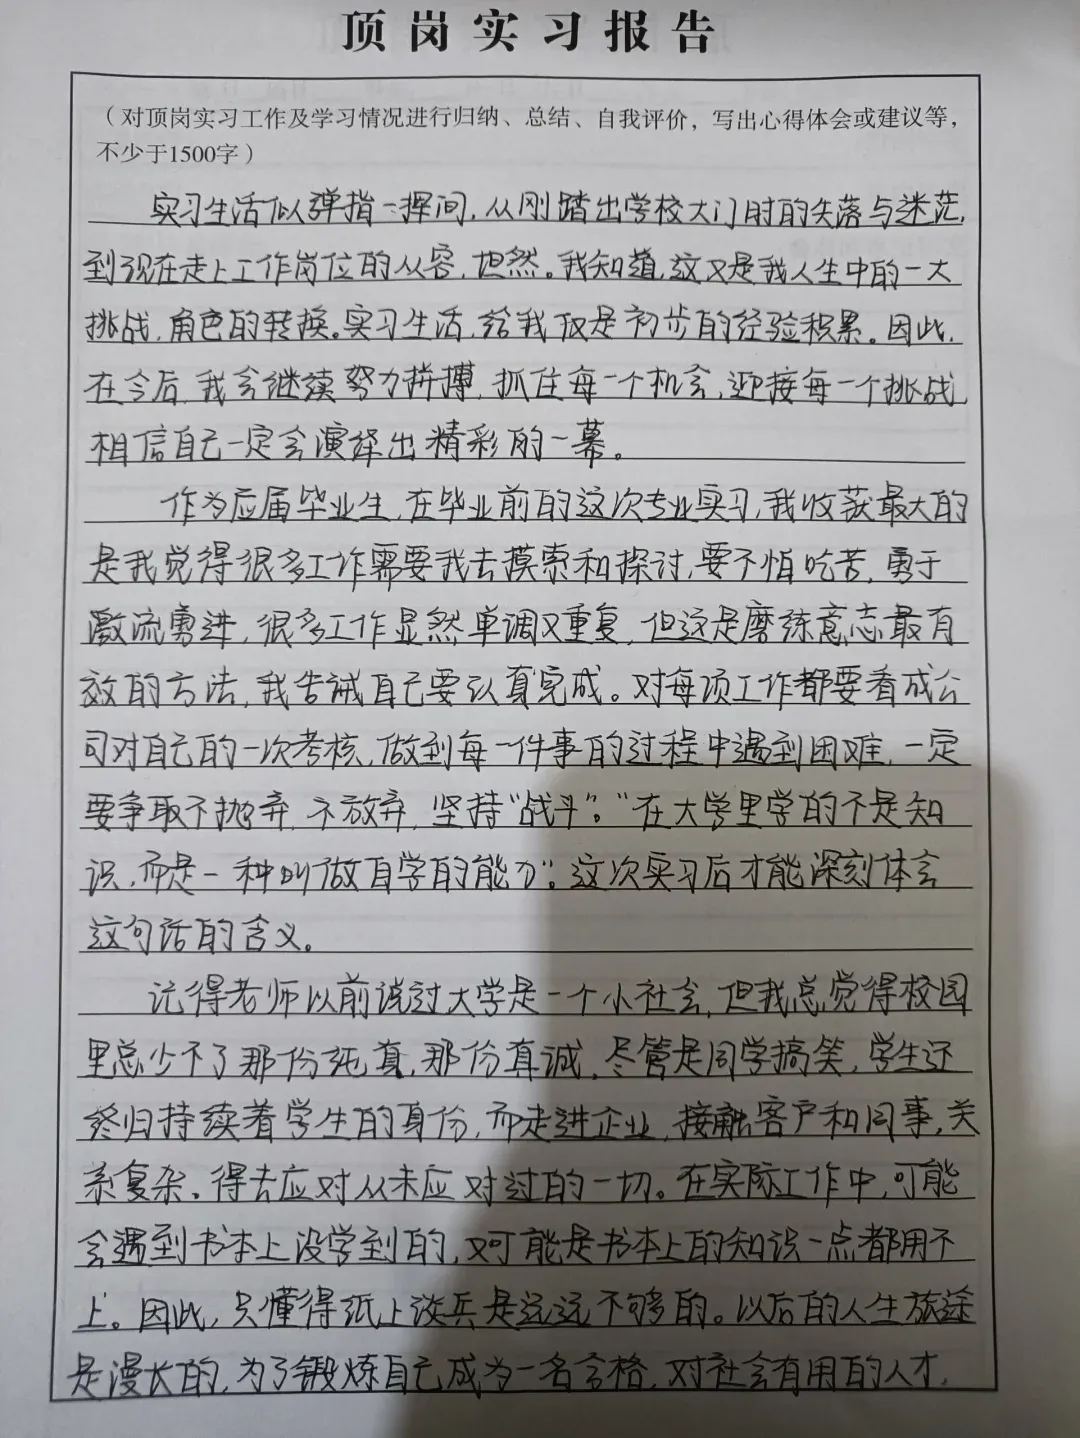 顶岗实习报告
（对顶岗实习工作及学习情况进行归纳、总结、自我评价，写出心得体会或建议等，
不少于1500字）
实习生活似弹指一挥间，从刚踏出学校大门时的失落与迷茫，
到现在走上工作岗位的从容，坦然。我知道，这又是我人生中的一大
挑战，角色的转换。实习生活，给我仅是初步的经验积累。因此，
在今后，我会继续努力拼搏，抓住每一个机会，迎接每一个挑战，
相信自己一定会演绎出精彩的一幕。
作为应届毕业生，在毕业前的这次专业实习，我收获最大的
是我觉得很多工作需要我去摸索和探讨，要不怕吃苦，勇于
激流勇进，很多工作显然单调又重复，但这是磨练意志最有
效的方法，我告诫自己要认真完成。对每项工作都要看成公
司对自己的一次考核，做到每一件事的过程中遇到困难，一定
要争取不抛弃，不放弃，坚持“战斗”。“在大学里学的不是知
识，而是一种叫做自学的能力”。这次实习后才能深刻体会
这句话的含义。
记得老师以前说过大学是一个小社会，但我总觉得校园
里总少不了那份纯真，那份真诚，尽管是同学搞笑，学生还
终归持续着学生的身份，而走进企业，接触客户和同事，关
系复杂，得去应对从未应对过的一切。在实际工作中，可能
会遇到书本上没学到的，又可能是书本上的知识一点都用不
上。因此，只懂得纸上谈兵是远远不够的。以后的人生旅途
是漫长的，为了锻炼自己成为一名合格，对社会有用的人才，